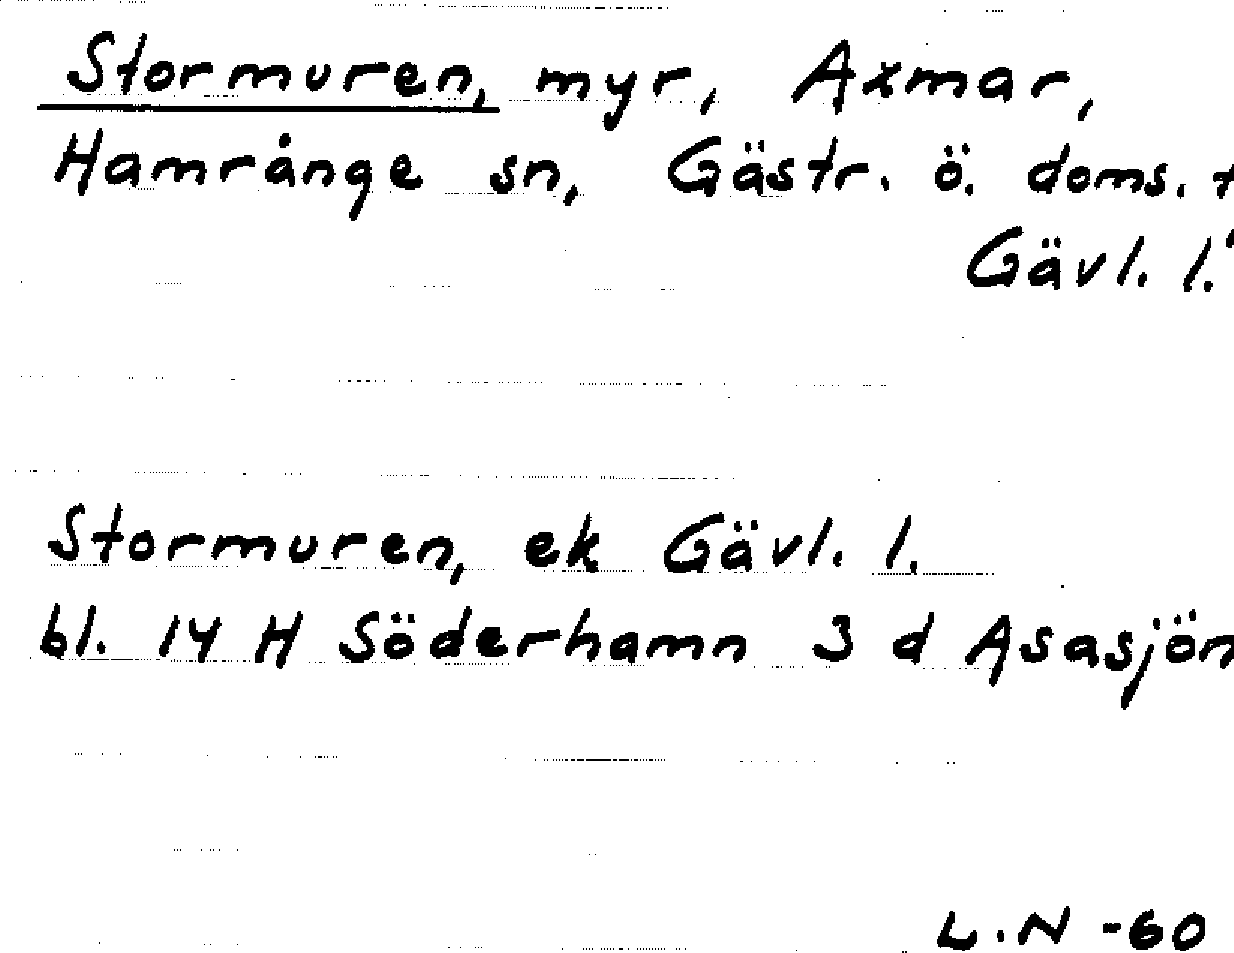 Stormuren, myr, Axmar,
Hamrånge sn, Gästr. ö. doms.
Gävl. l.
Stormuren, ek Gävl. l.
bl. 14 H Söderhamn 3 d Asasjön
L.N -60